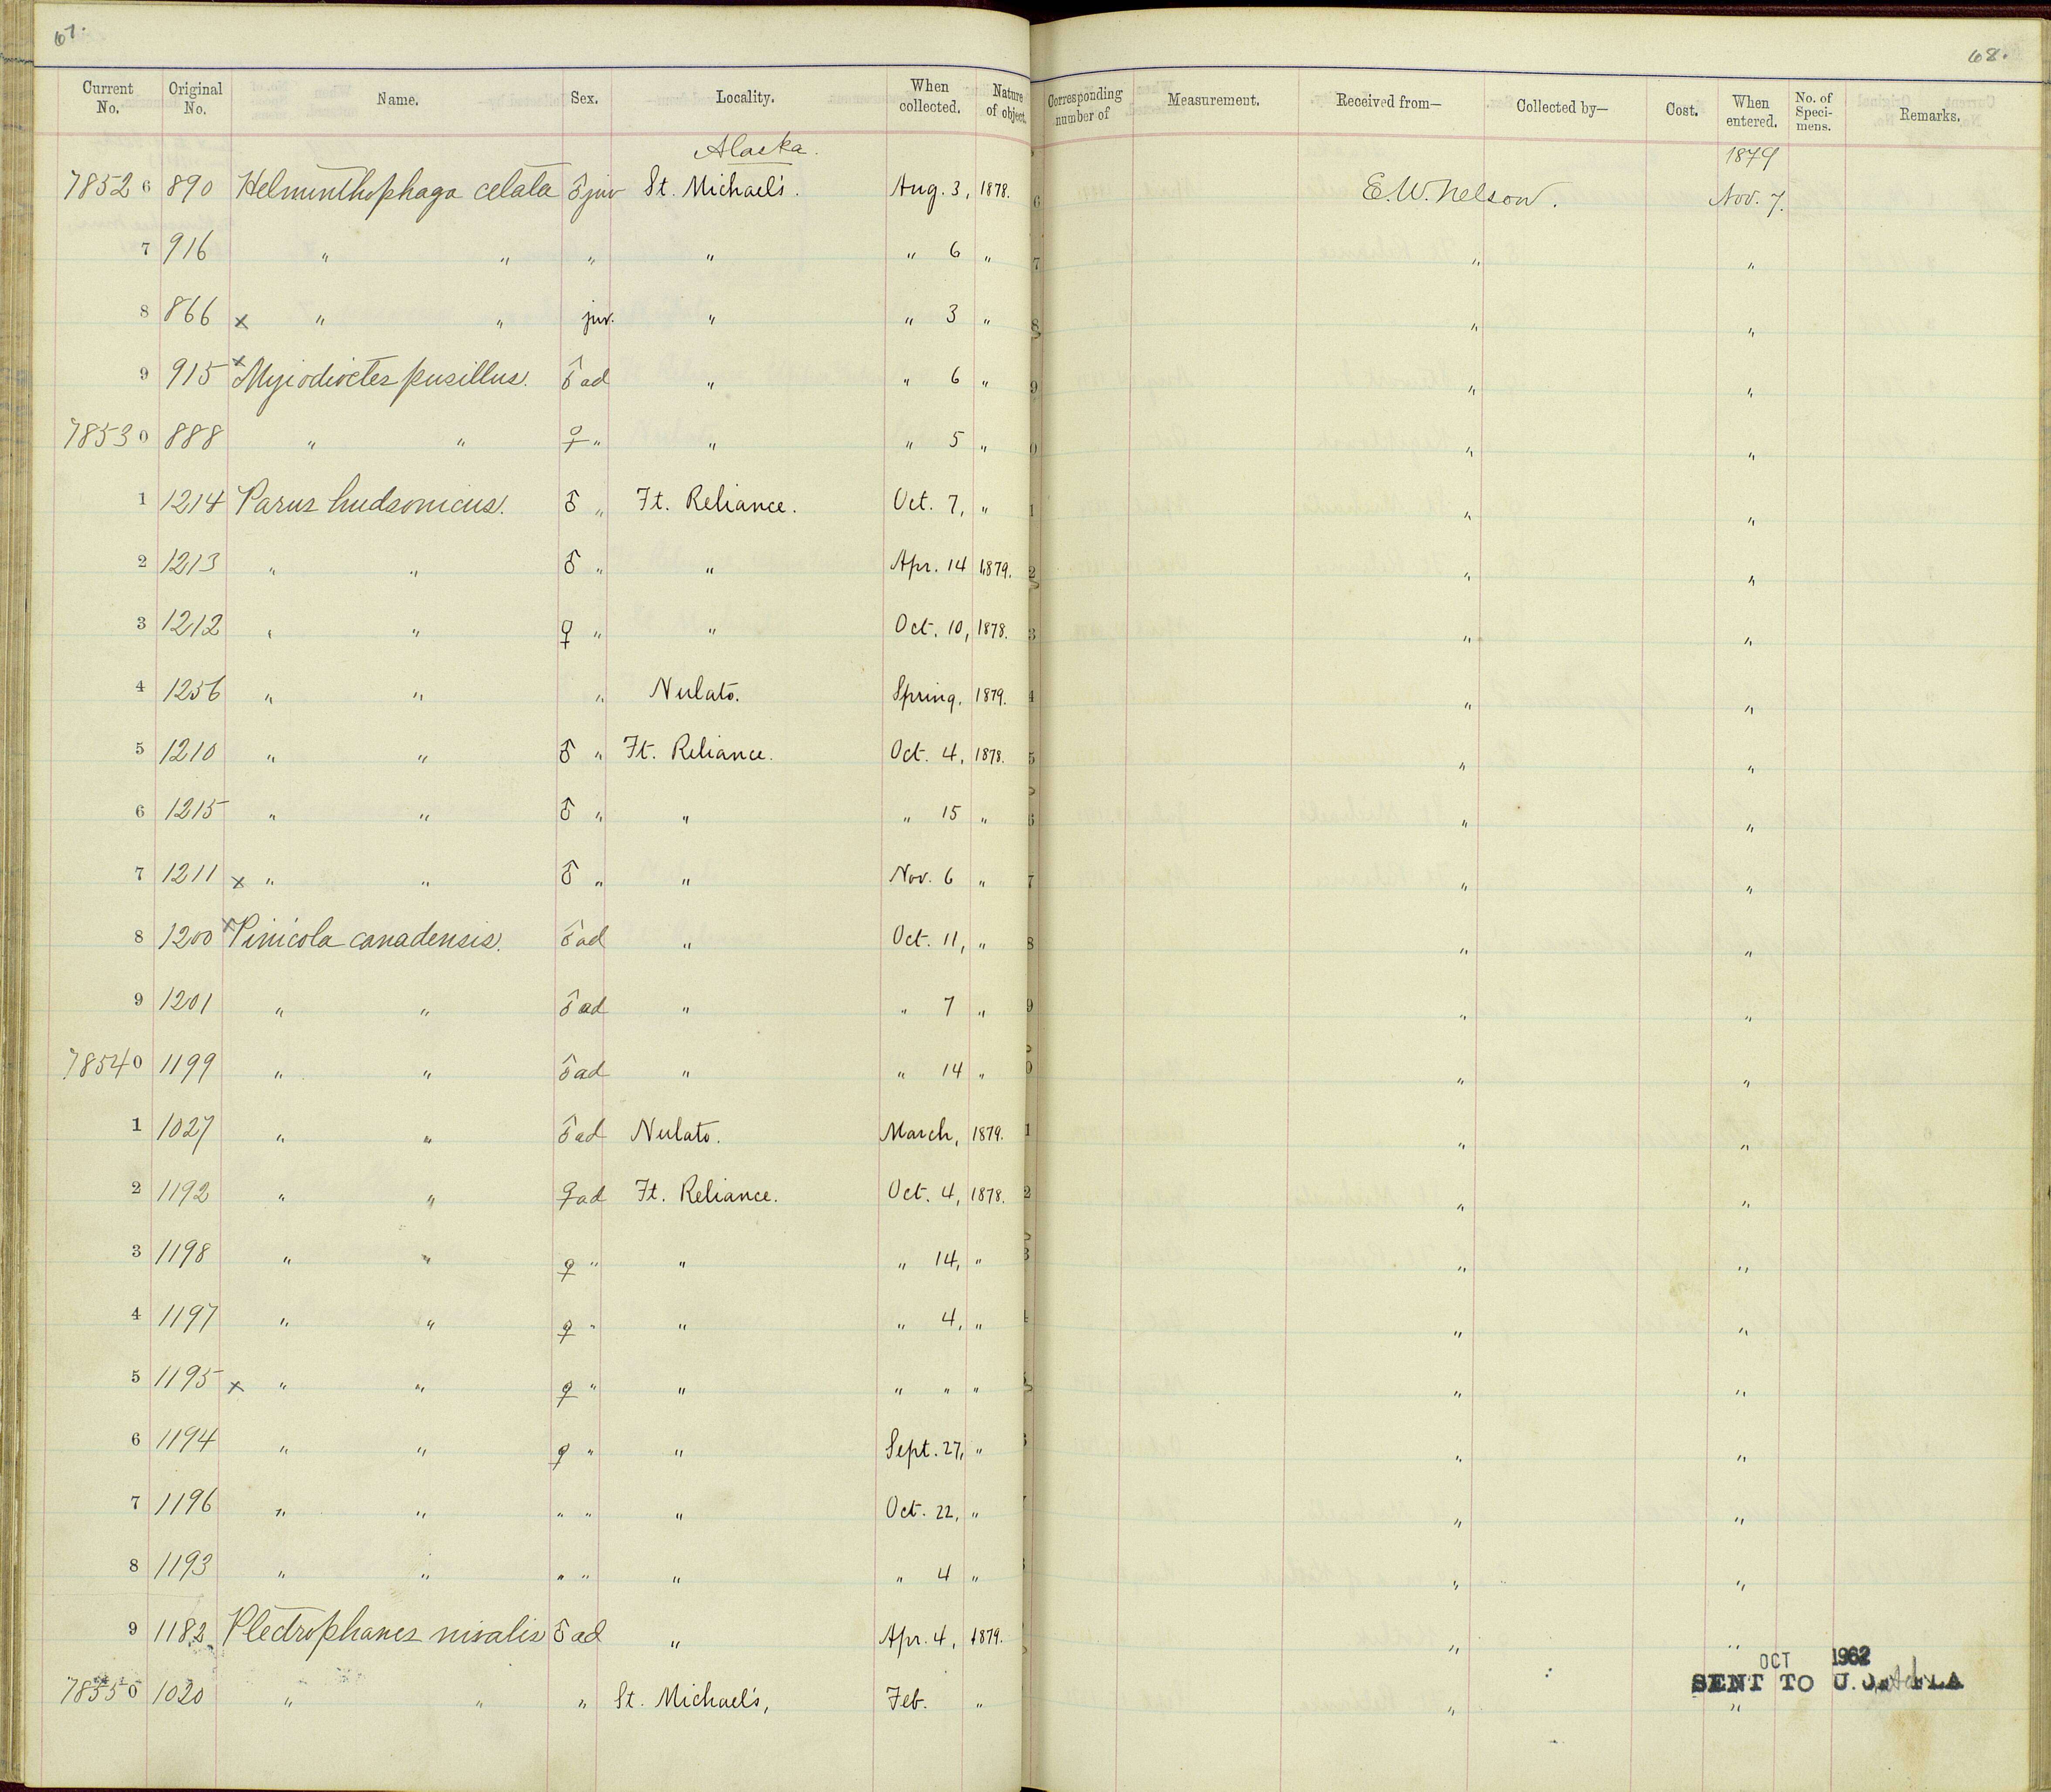 67.
68.
Current No. Original No. Name. Sex. Locality. When collected. Nature of object. Corresponding number of Measurement. Received from— Collected by— Cost. When entered. No. of Speci-mens. Remarks.
Alaska. 1879
7852 6 890 Helminthophaga celata ♂ juv St. Michael's. Aug. 3, 1878. 6 E.W. Nelson. Nov. 7.
7 916 " " " " " 6 " 7 " "
8 866 x " " juv. " " 3 " 8 " "
9 915 x Myiodioctes pusillus. ♂ ad " " 6 " 9 " "
7853 0 888 " " ♀ " " " 5 " 0 " "
1 1214 Parus hudsonicus. ♂ " Ft. Reliance. Oct. 7, " 1 " "
2 1213 " " ♂ " " Apr. 14 1879. 2 " "
3 1212 " " ♀ " " Oct. 10, 1878. 3 " "
4 1256 " " " Nulato. Spring. 1879. 4 " "
5 1210 " " ♂ " Ft. Reliance. Oct. 4, 1878. 5 " "
6 1215 " " ♂ " " " 15 " 6 " "
7 1211 x " " ♂ " " Nov. 6 " 7 " "
8 1200 x Pinicola canadensis. ♂ ad " Oct. 11, " 8 " "
9 1201 " " ♂ ad " " 7 " 9 " "
7854 0 1199 " " ♂ ad " " 14 " 0 " "
1 1027 " " ♂ ad Nulato. March, 1879. 1 " "
2 1192 " " ♀ ad Ft. Reliance. Oct. 4, 1878. 2 " "
3 1198 " " ♀ " " " 14, " 3 " "
4 1197 " " ♀ " " " 4, " " "
5 1195 x " " ♀ " " " " " " "
6 1194 " " ♀ " " Sept. 27, " " "
7 1196 " " " " " Oct. 22, " " "
8 1193 " " " " " " 4 " " "
9 1182 Plectrophanes nivalis ♂ ad " Apr. 4, 1879. " "
OCT 1962
SENT TO U.
7855 0 1020 " " " St. Michael's, Feb. " " "